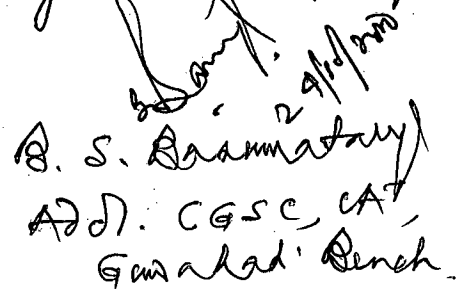 B. S. Basumatary
Addl. CGSC, CAT,
Guwahati Bench.